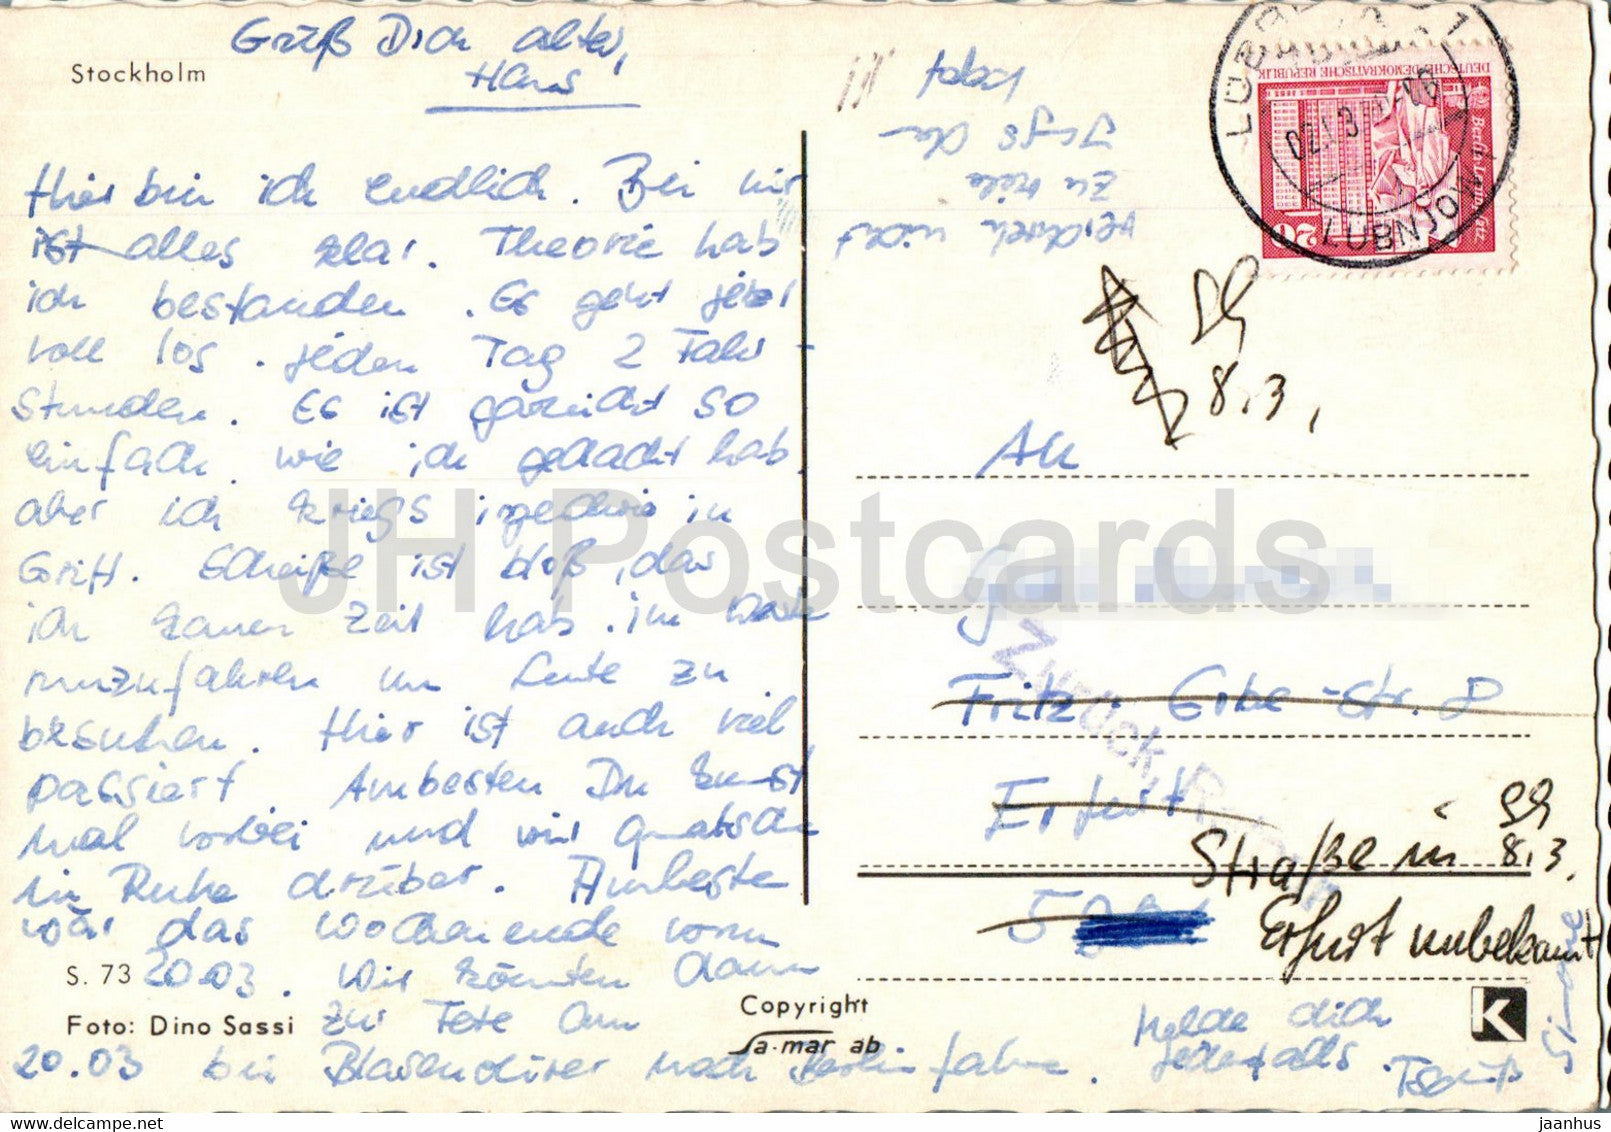 Stockholm
Grüß Dich alter,
Hans
Hier bin ich endlich. Bei mir
ist alles klar. Theorie hab
ich bestanden. Es geht jetzt
voll los. jeden Tag 2 Fahr-
stunden. Es ist garnicht so
einfach wie ich gedacht hab.
aber ich kriegs irgedwie in
Griff. Scheiße ist bloß, das
ich kaum Zeit hab. im
rumzufahren um Leute zu
besuchen. Hier ist auch viel
passiert. Ambesten Du kommst
mal vorbei und wir quatschen
in Ruhe drüber. Ambesten
wär das Wochenende vorm
20.03. Wir könnten dann
zur Fete Am
20.03 bei nach Berlin fahrn.
Melde dich
jedenfalls. Tschüß
Simone
S. 73
Foto: Dino Sassi
Copyright
Sa-mar ab
K
verdireh nicht
zu viele
Jungs da
DEUTSCHE DEMOKRATISCHE REPUBLIK
Berlin Leninplatz
20
LÜBBENAU 1
LUBNJOW
8.3.
An
Fritz-Erbe-Str. 8
Erfurt
Zurück
Straße in
8.3.
Erfurt unbekannt
JH Postcards
www.delcampe.net
jaanhus